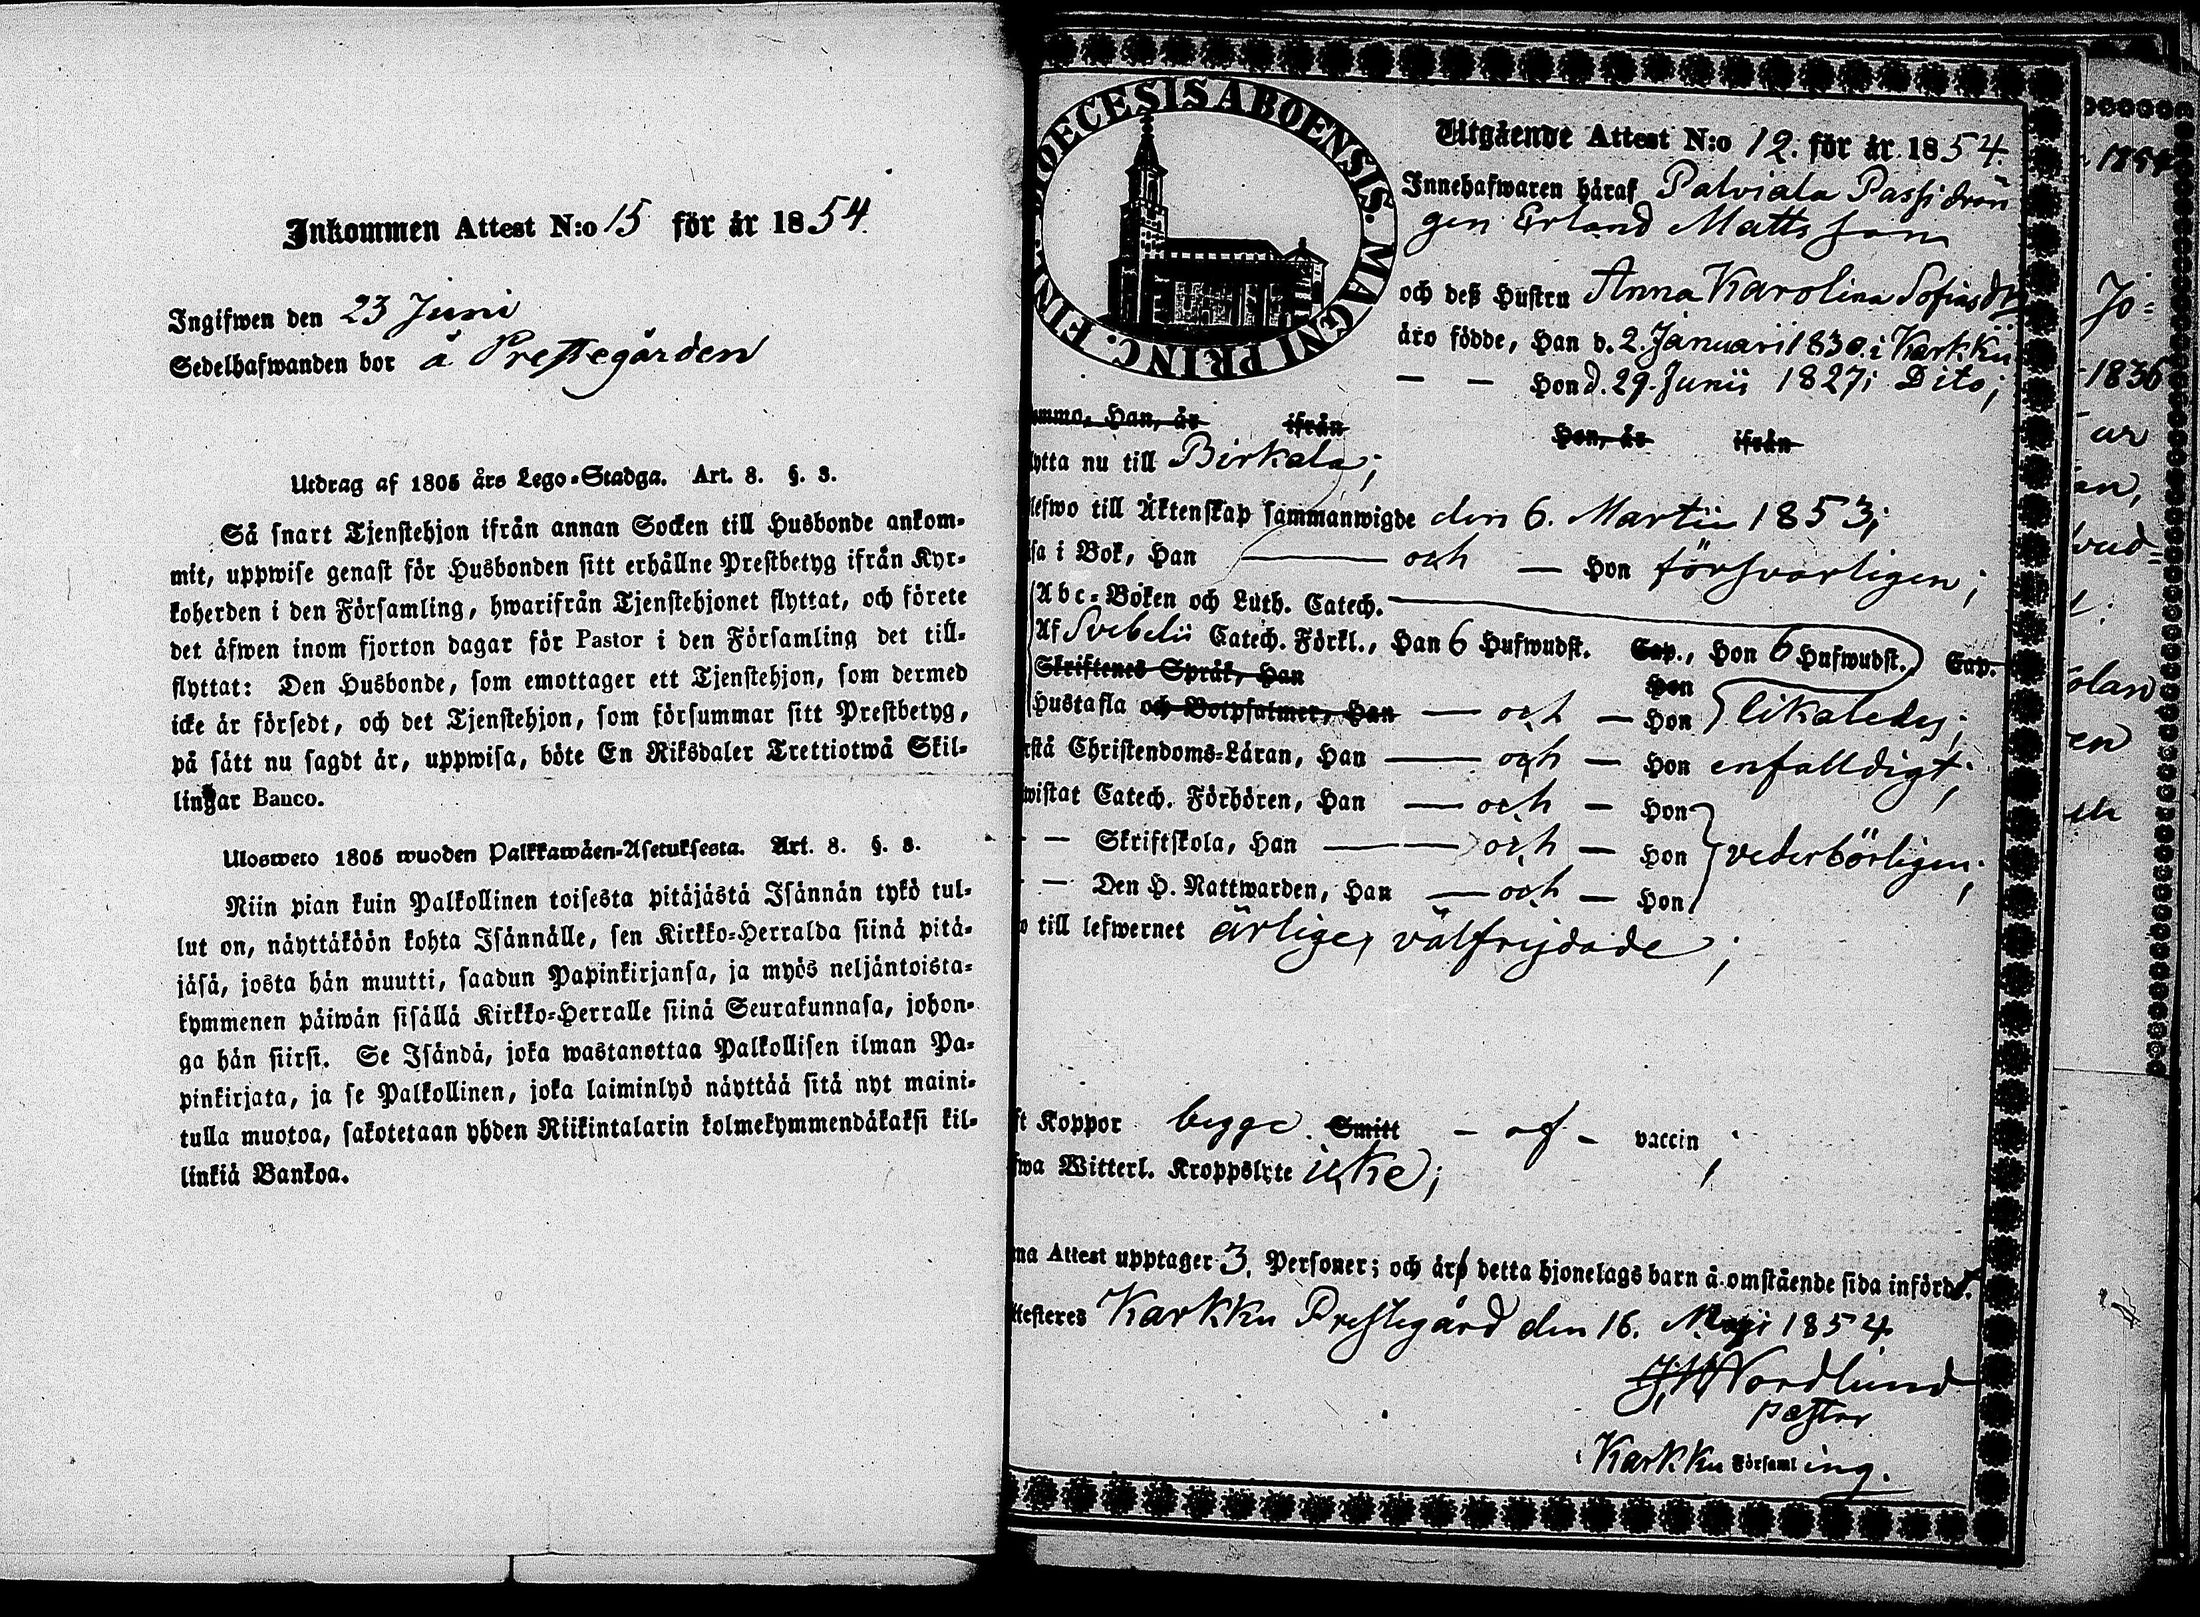 Inkommen Attest N:o 15 för år 1854.
Ingifwen den 23 Juni
Sedelhafwanden bor å Prestegården
Utdrag af 1805 års Lego-Stadga. Art. 8. §. 3.
Så snart Tjenstehjon ifrån annan Socken till Husbonde ankom-
mit, uppwise genast för Husbonden sitt erhållne Prestbetyg ifrån Kyr-
koherden i den Församling, hwarifrån Tjenstehjonet flyttat, och förete
det äfwen inom fjorton dagar för Pastor i den Församling det till-
flyttat: Den Husbonde, som emottager ett Tjenstehjon, som dermed
icke är försedt, och det Tjenstehjon, som försummar sitt Prestbetyg,
på sätt nu sagdt är, uppwisa, böte En Riksdaler Trettiotwå Skil-
lingar Banco.
Ulosweto 1805 wuoden Palkkawäen-Asetuksesta. Art. 8. §. 3.
Niin pian kuin Palkollinen toisesta pitäjästä Isännän tykö tul-
lut on, näyttäköön kohta Isännälle, sen Kirkko-Herralda siinä pitä-
jäsä, josta hän muutti, saadun Papinkirjansa, ja myös neljäntoista-
kymmenen päiwän sisällä Kirkko-Herralle siinä Seurakunnasa, johon-
ga hän siirsi. Se Isändä, joka wastanottaa Palkollisen ilman Pa-
pinkirjata, ja se Palkollinen, joka laiminlyö näyttää sitä nyt maini-
tulla muotoa, sakotetaan yhden Riikintalarin kolmekymmendäkaksi kil-
linkiä Bankoa.
DIOECESIS ABOENSIS. MAGNI PRINC. FINL.
Utgående Attest N:o 12. för år 1854.
Innehafwaren häraf Palviala Passi drän
gen Erland Matts son
och deß Hustru Anna Karolina Sofiasdr
äro födde, Han d. 2. Januarii 1830. i Karkku
— — Hon d. 29. Junii 1827 i Dito;
ommo, Han, år ifrån Hon, år ifrån
lytta nu till Birkala;
lefwo till Äktenskap sammanwigde den 6. Martii 1853;
sa i Bok, Han — och — Hon försvarligen;
Abc-Boken och Luth. Catech.
Af Svebelii Catech. Förkl., Han 6 Hufwudst. Cap., Hon 6 Hufwudst. Cap.
Skriftenes Språk, Han Hon
Hustafla och Botpsalmer, Han — och — Hon likaledes;
rstå Christendoms-Läran, Han — och — Hon enfalldigt;
wistat Catech. Förhören, Han — och — Hon
— Skriftskola, Han — och — Hon vederbörligen;
— Den H. Nattwarden, Han — och — Hon
o till lefwernet ärlige, välfrejdade;
ft Koppor begge. Smitt – af – vaccin;
fwa Witterl. Kroppslyte icke;
na Attest upptager 3. Personer; och äro detta hjonelags barn å omstående sida infördt.
ttesteres Karkku Prestegård den 16. Maji 1854
J. W. Nordlund
pastor
i Karkku Församling.
1854
Jo=
1836
ur
an,
vud=
olan
en